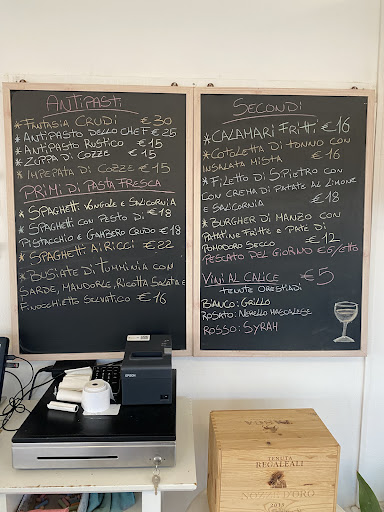 ANTIPASTI
* FANTASIA CRUDI €30
* ANTIPASTO DELLO CHEF €25
* ANTIPASTO RUSTICO €15
* ZUPPA DI COZZE €15
* IMPEPATA DI COZZE €15
PRIMI DI PASTA FRESCA
* SPAGHETTI VONGOLE E SALICORNIA €18
* SPAGHETTI CON PESTO DI
PISTACCHIO E GAMBERO CRUDO €18
* SPAGHETTI AI RICCI €22
* BUSIATE DI TUMMINIA CON
SARDE, MANDORLE, RICOTTA SALATA E
FINOCCHIETTO SELVATICO €16
SECONDI
* CALAMARI FRITTI €16
* COTOLETTA DI TONNO CON
INSALATA MISTA €16
* FILETTO DI S.PIETRO CON
CON CREMA DI PATATE AL LIMONE
E SALICORNIA €18
* BURGHER DI MANZO CON
PATATINE FRITTE E PATÈ DI
POMODORO SECCO €12
PESCATO DEL GIORNO €6/ETTO
VINI AL CALICE €5
TENUTE ORESTIADI
BIANCO: GRILLO
ROSATO: NERELLO MASCALESE
ROSSO: SYRAH
EPSON
TENUTA
REGALEALI
NOZZE D'ORO
2013